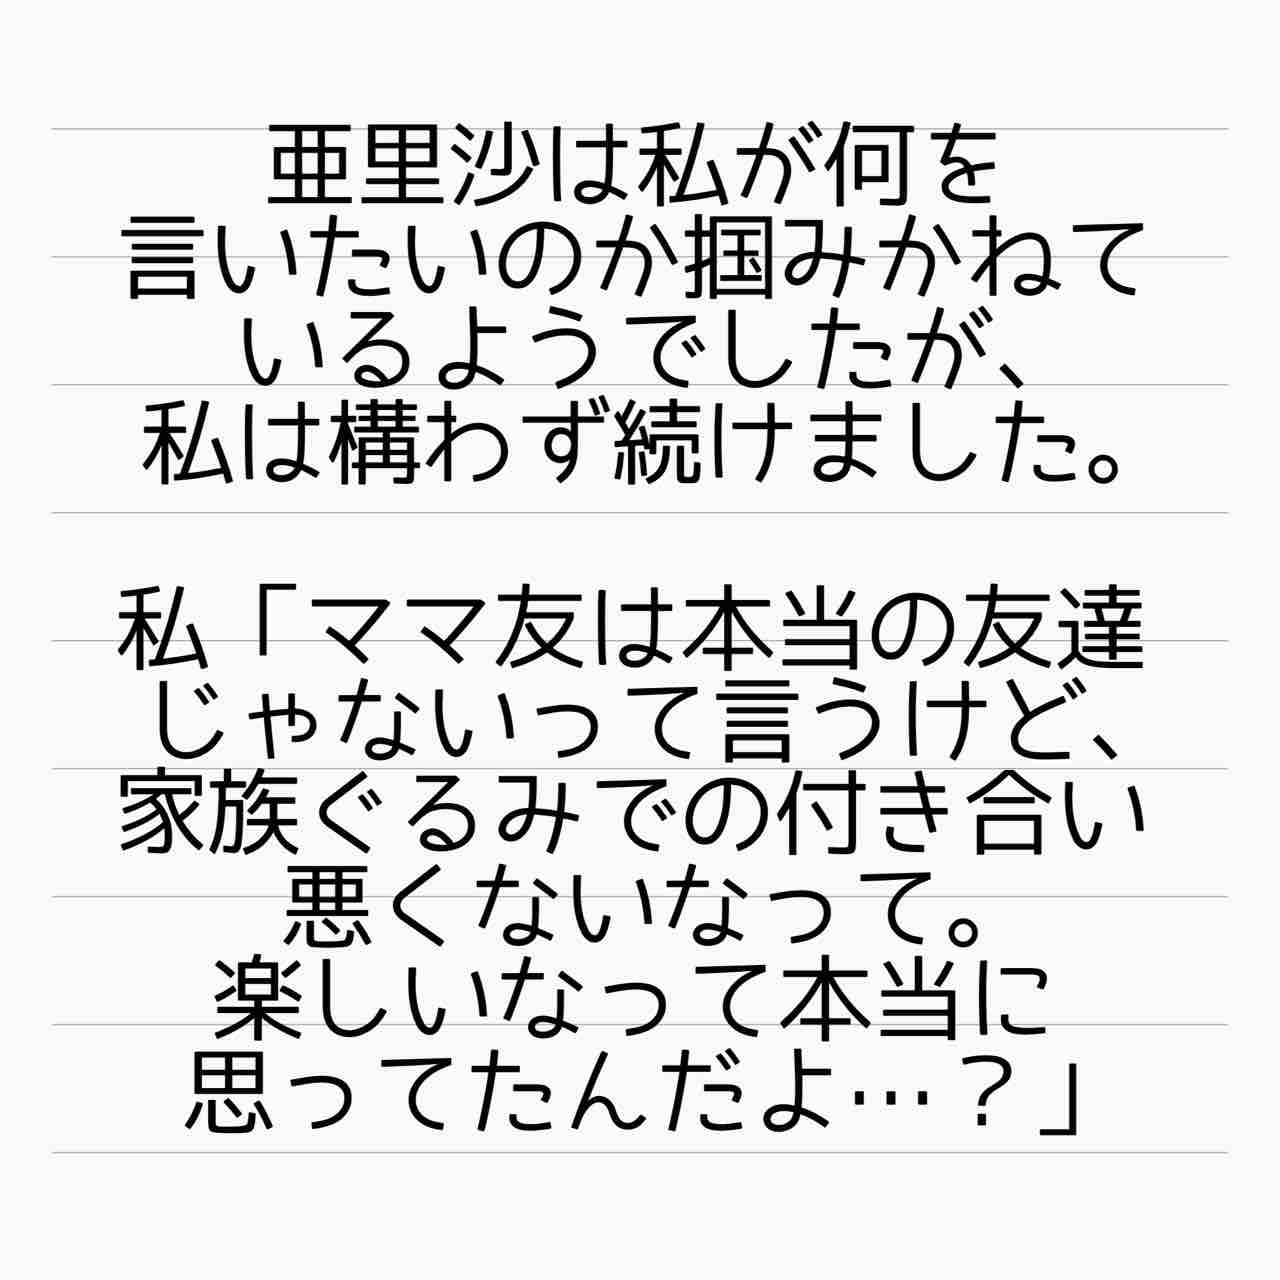 亜里沙は私が何を
言いたいのか掴みかねて
いるようでしたが、
私は構わず続けました。
私「ママ友は本当の友達
じゃないって言うけど、
家族ぐるみでの付き合い
悪くないなって。
楽しいなって本当に
思ってたんだよ…？」